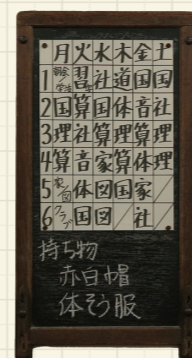 月 火 水 木 金 土
1 朝会/学活 習 社 道 国 国
2 国 算 国 体 音 社
3 理 社 算 理 算 算
4 算 音 家 算 体 理
5 家/図 体 図 国 家 /
6 クラブ 国 図 / 社 /
持ち物
赤白帽
体そう服